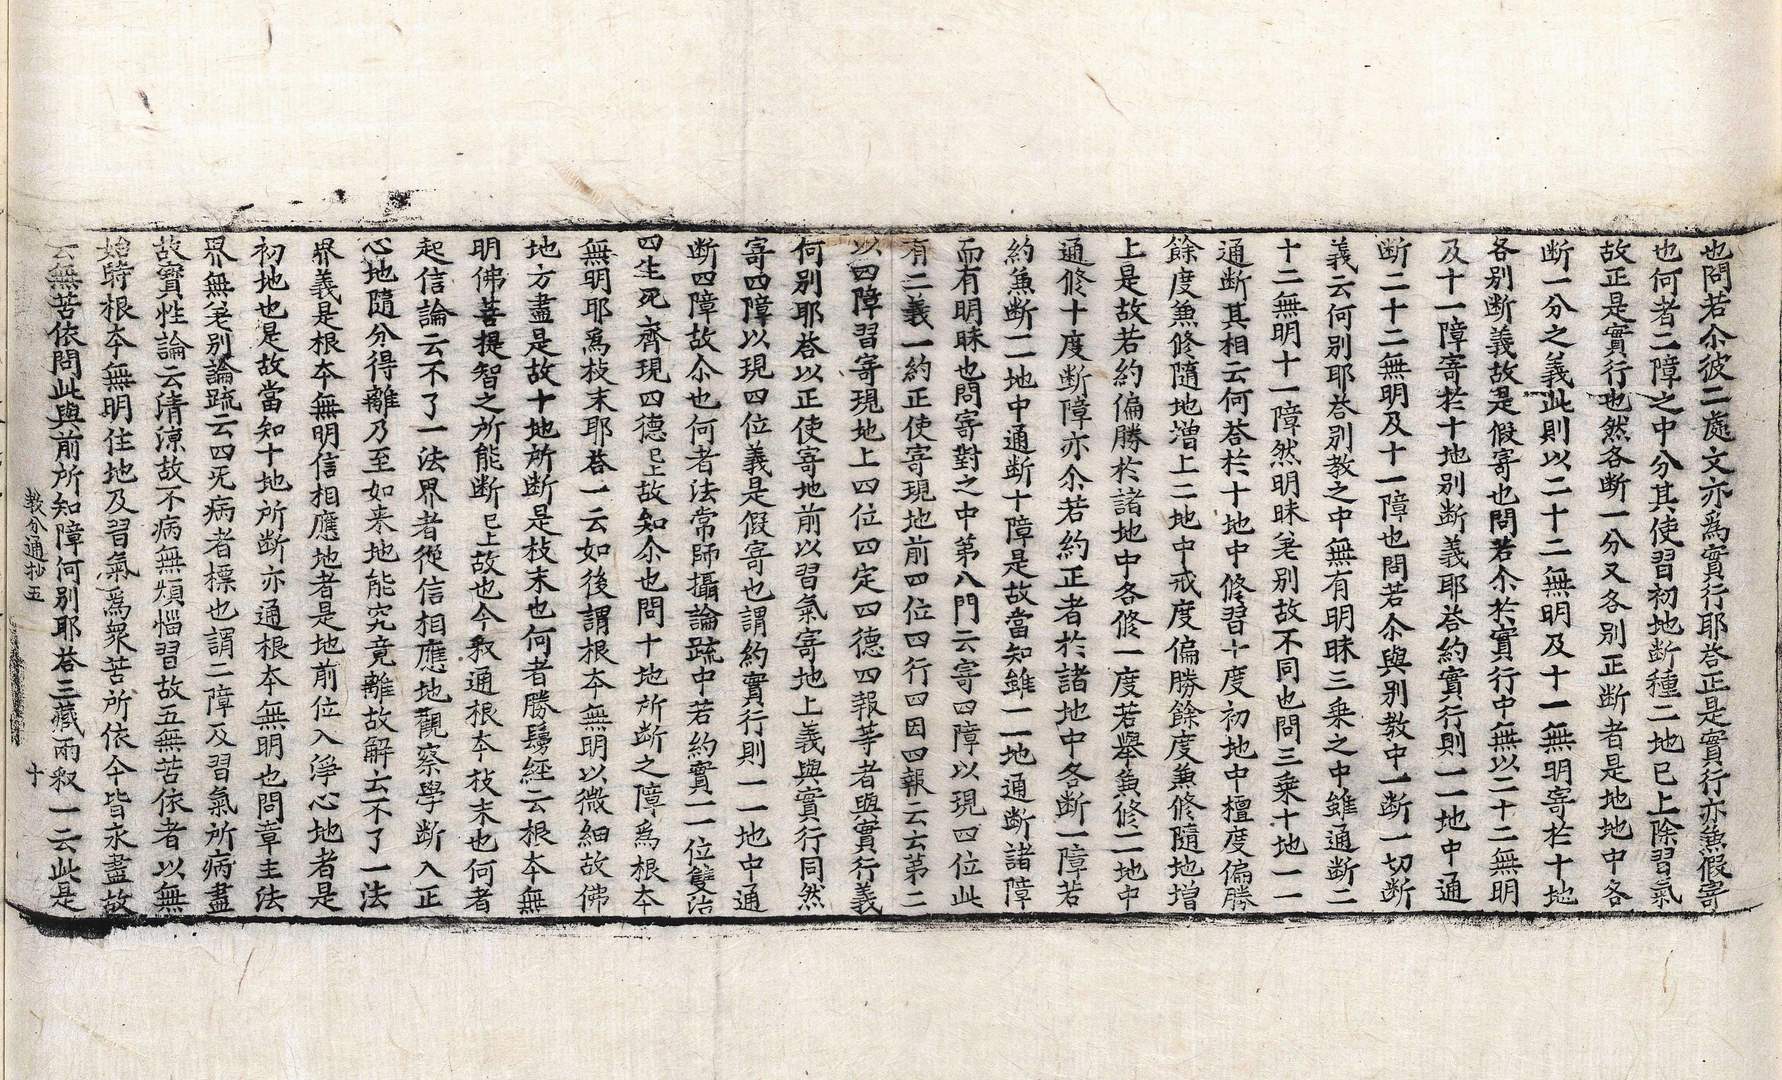 也問若尒彼二處文亦爲實行耶荅正是實行亦𠔥假寄
也何者二障之中分其使習初地断種二地已上除習氣
故正是實行也然各断一分又各別正断者是地地中各
断一分之義此則以二十二無明及十一無明寄於十地
各別断義故是假寄也問若尒於實行中無以二十二無明
及十一障寄於十地別断義耶荅約實行則一一地中通
断二十二無明及十一障也問若尒與別教中一断一切断
義云何別耶荅別教之中無有明昧三乗之中雖通断二
十二無明十一障然明昧差別故不同也問三乗十地一一
通断其相云何荅於十地中修習十度初地中檀度偏勝
餘度𠔥修隨地增上二地中戒度偏勝餘度𠔥修隨地增
上是故若約偏勝於諸地中各修一度若擧𠔥修二地中
通修十度断障亦尒若約正者於諸地中各断一障若
約𠔥断二地中通断十障是故當知雖一一地通断諸障
而有明昧也問寄對之中第八門云寄四障以現四位此
有二義一約正使寄現地前四位四行四因四報云云第二
以四障習寄現地上四位四定四德四報䓁者與實行義
何別耶荅以正使寄地前以習氣寄地上義與實行同然
寄四障以現四位義是假寄也謂約實行則一一地中通
断四障故尒也何者法常師攝論疏中若約實一一位雙治
四生死齊現四德已上故知尒也問十地所断之障爲根本
無明耶爲枝末耶荅一云如後謂根本無明以微細故佛
地方盡是故十地所断是枝末也何者勝鬘經云根本無
明佛菩提智之所能断已上故也今釈通根本枝末也何者
起信論云不了一法界者從信相應地觀察學断入正
心地隨分得離乃至如来地能究竟離故解云不了一法
界義是根本無明信相應地者是地前位入淨心地者是
初地也是故當知十地所断亦通根本無明也問章主法
界無差別論疏云四无病者標也謂二障及習氣所病盡
故寶性論云清涼故不病無煩惱習故五無苦依者以無
始時根本無明住地及習氣爲衆苦所依今皆永盡故
云無苦依問此與前所知障何別耶荅三藏兩釈一云此是
教分通抄五　十